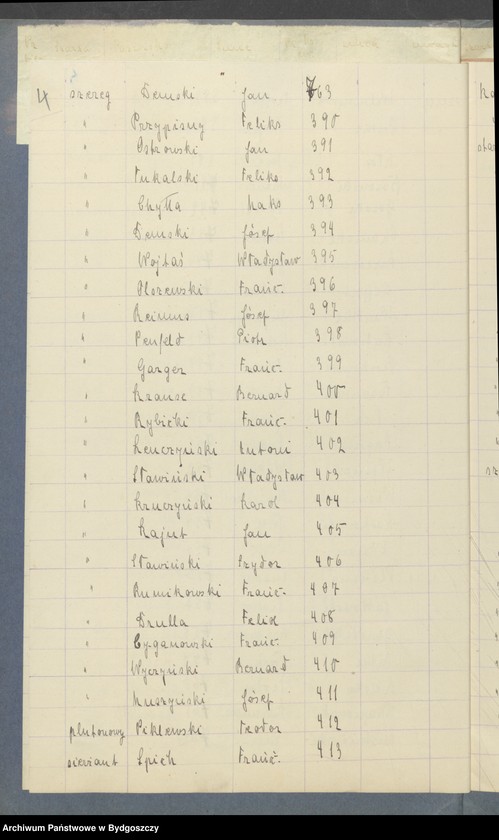 4 szereg Demski Jan 763
" Przypisny Feliks 390
" Ostrowski Jan 391
" Tukalski Feliks 392
" Chyłła Maks 393
" Demski Józef 394
" Wojtaś Władysław 395
" Olszewski Franc. 396
" Reimus Józef 397
" Penfeld Piotr 398
" Garger Franc. 399
" Krause Bernard 400
" Rybicki Franc. 401
" Kenczyński Antoni 402
" Sławiński Władysław 403
" Kruczyński Karol 404
" Kajut Jan 405
" Sławiński Izydor 406
" Rumikowski Franc. 407
" Drulla Felix 408
" Cyganowski Franc. 409
" Wyczyński Bernard 410
" Muszyński Józef 411
plutonowy Piklewski Teodor 412
sierżant Spich Franc. 413
Archiwum Państwowe w Bydgoszczy